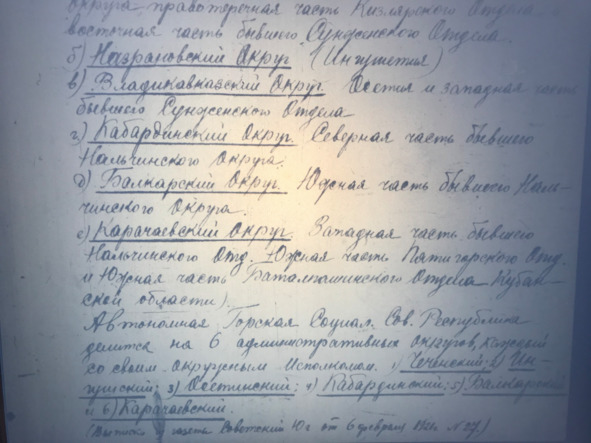 округа правотеречная часть Кизлярского Отдела и
восточная часть бывшего Сунженского Отдела.
б) Назрановский Округ (Ингушетия)
в) Владикавказский Округ Осетия и западная часть
бывшего Сунженского Отдела
г) Кабардинский Округ. Северная часть бывшего
Нальчинского Округа.
д) Балкарский Округ. Южная часть бывшего Наль-
чинского Округа.
е) Карачаевский Округ. Западная часть бывшего
Нальчинского Отд. Южная часть Пятигорского Отд.
и Южная часть Баталпашинского Отдела Кубан-
ской области).
Автономная Горская Социал. Сов. Республика
делится на 6 административных округов, каждый
со своим окружным Исполкомом. 1) Чеченский; 2) Ин-
гушский; 3) Осетинский; 4) Кабардинский; 5) Балкарский
и 6) Карачаевский.
(Выписка газета Советский Юг от 6 февраля 1921 г. №27.)